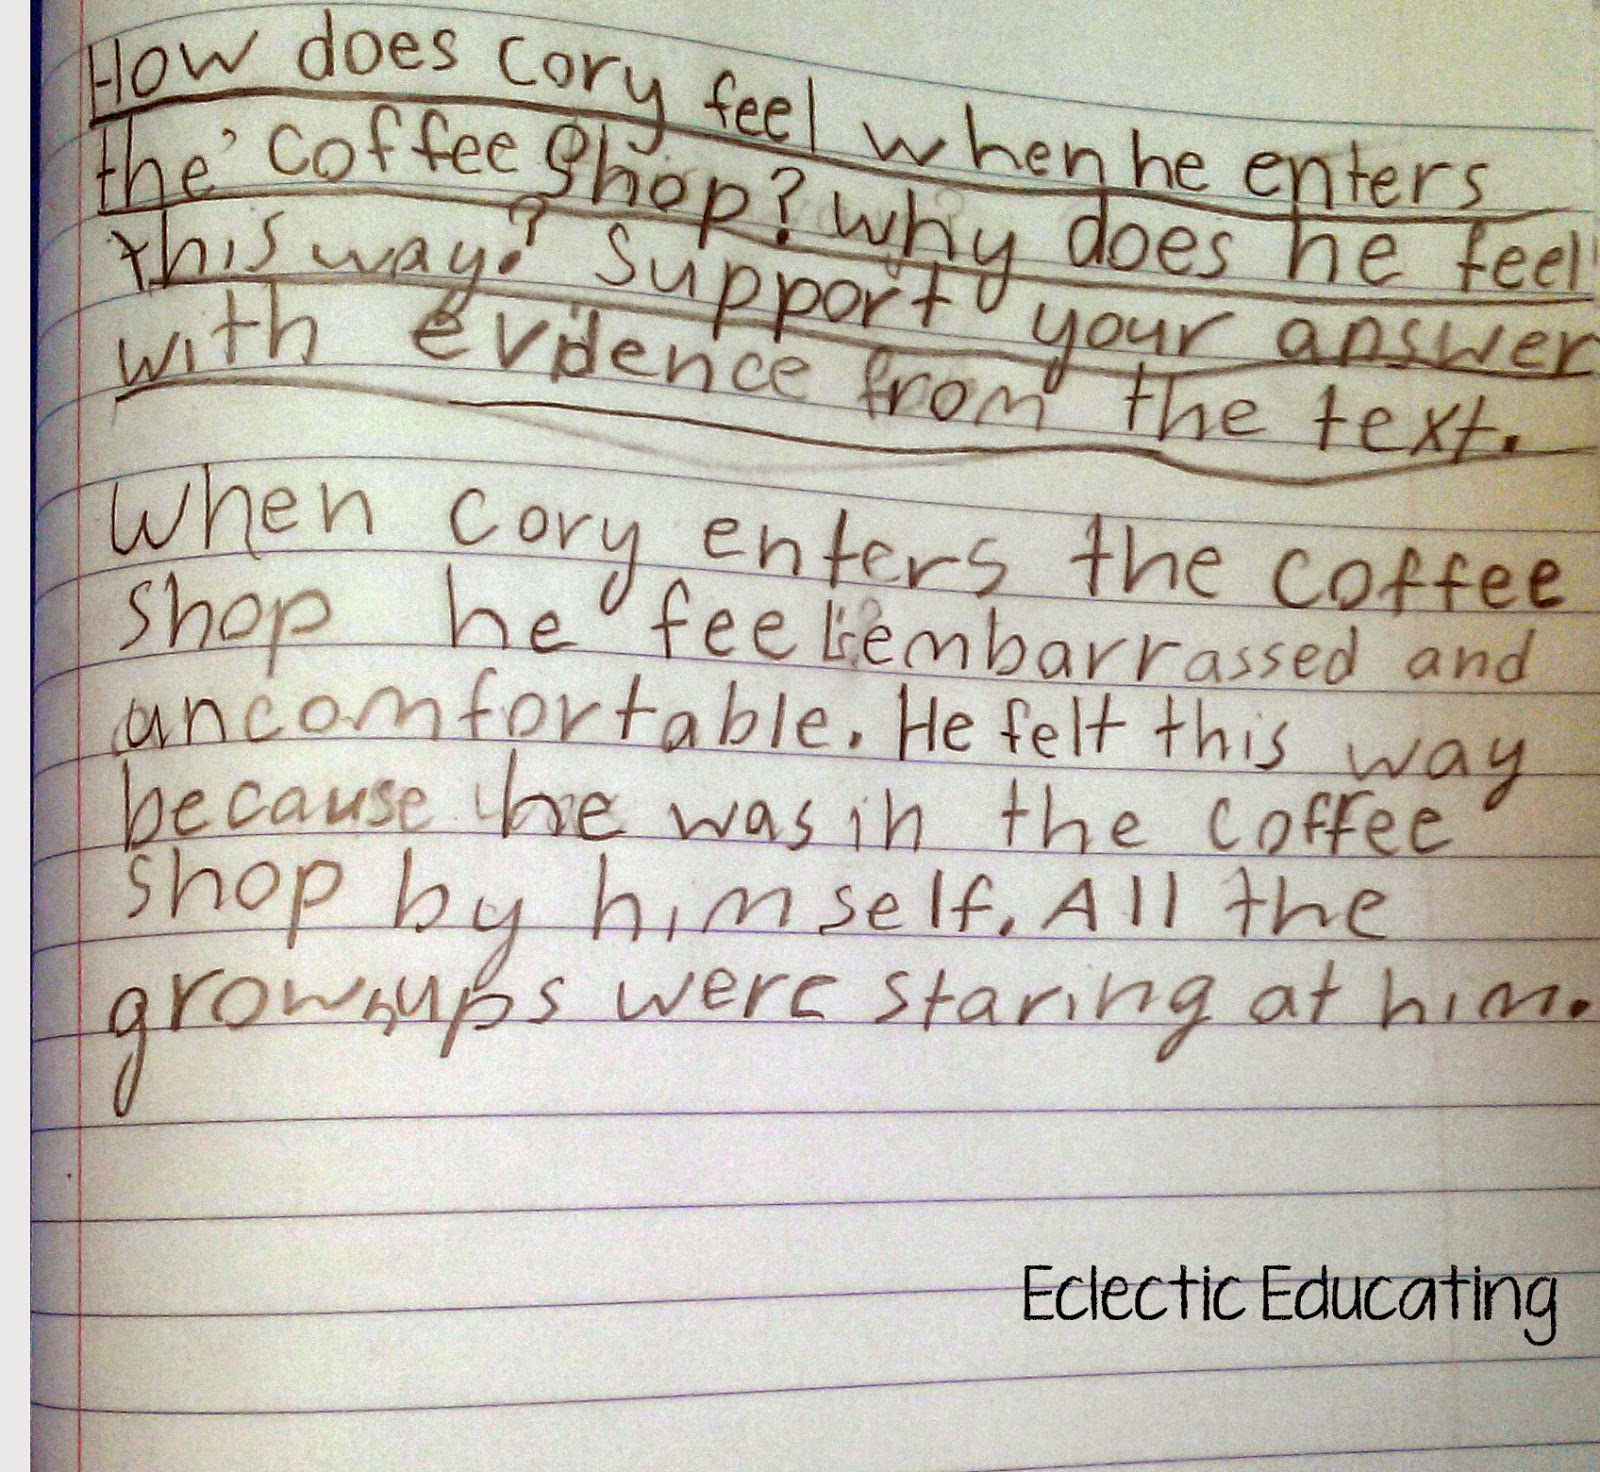 How does Cory feel when he enters
the coffee shop? Why does he feel
this way? Support your answer
with evidence from the text.
When Cory enters the coffee
shop he feels embarrassed and
uncomfortable. He felt this way
because he was in the coffee
shop by himself. All the
grownups were staring at him.
Eclectic Educating